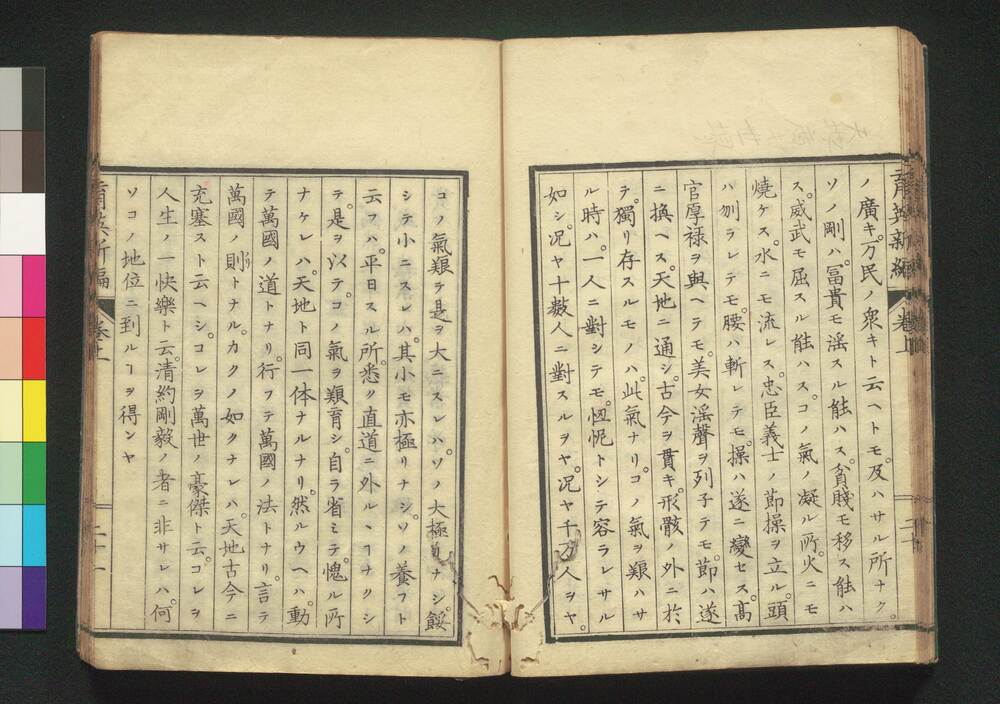 ノ廣キ。万民ノ衆キト云ヘトモ。及ハサル所ナク。
ソノ剛ハ。冨貴モ滛スル能ハス。貧賤モ移ス能ハ
ス。威武モ屈スル能ハス。コノ氣ノ凝ル所。火ニモ
燒ケス。水ニモ流レス。忠臣義士ノ節操ヲ立ル。頭
ハ刎ラレテモ。腰ハ斬レテモ。操ハ遂ニ變セス。髙
官厚禄ヲ與ヘテモ。美女滛聲ヲ列子テモ。節ハ遂
ニ換ヘス。天地ニ通シ。古今ヲ貫キ。形骸ノ外ニ於
テ。獨リ存スルモノハ。此氣ナリ。コノ氣ヲ艱ハサ
ル時ハ。一人ニ對シテモ。忸怩トシテ容ラレサル
如シ。况ヤ十數人ニ對スルヲヤ。况ヤ千万人ヲヤ。
育英新編
卷上
二十
コノ氣艱テ是ヲ大ニスレハ。ソノ大極リナシ。餒
シテ小ニスレハ。其小モ亦極リナシ。ソノ養フト
云フハ。平日スル所。悉ク直道ニ外ルヽヿナクシ
テ。是ヲ以テ。コノ氣ヲ頬育シ。自ラ省ミテ。愧ル所
ナケレハ。天地ト同一体ナルナリ。然ルウヘハ。動
テ萬國ノ道トナリ。行フテ萬國ノ法トナリ。言テ
萬國ノ則トナル。カクノ如クナレハ。天地古今ニ
充塞スト云ヘシ。コレヲ萬世ノ豪傑ト云。コレヲ
人生ノ一快樂ト云。清約剛毅ノ者ニ非サレハ。何
ソコノ地位ニ到ルヿヲ得ンヤ
育英新編
卷上
二十一